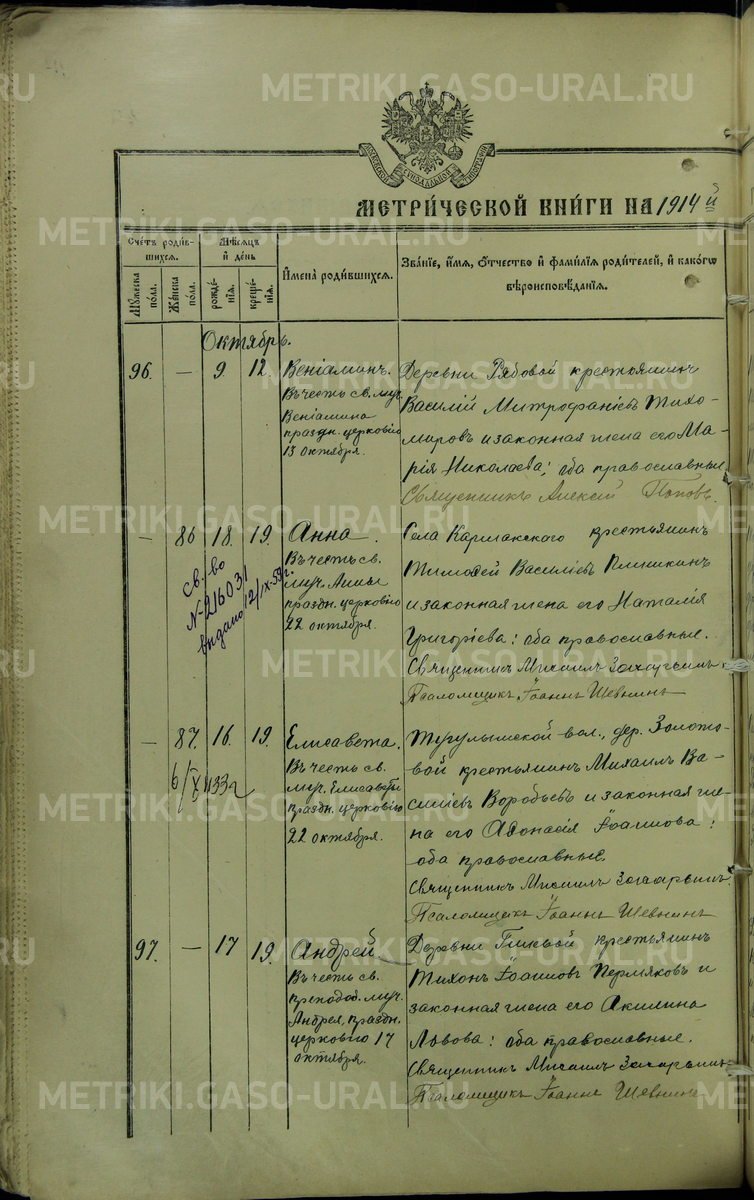 METRIKI.GASO-URAL.RU
МЕТРИЧЕСКОЙ КНИГИ НА 1914 й
Счетъ родившихся.
Мужеска пола.
Женска пола.
Мѣсяцъ и день
рожденія.
крещенія.
Имена родившихся.
Званіе, имя, отчество и фамилія родителей, и какого вѣроисповѣданія.
Октябрь.
96. — 9 12. Веніаминъ.
Въ честь св. муч.
Веніамина
праздн. церковію
13 октября.
Деревни Рябовой крестьянинъ
Василій Митрофаніевъ Тихо-
мировъ и законная жена его Ма-
рія Николаева; оба православные
Священникъ Алексій Поповъ.
— 86 18. 19. Анна.
Въ честь св.
муч. Анны
праздн. церковію
22 октября.
св-во
N-216031
выдано 12/IX-55 г.
Села Кармакского крестьянинъ
Тимофей Василіевъ
и законная жена его Наталія
Григоріева: оба православные.
Священникъ Михаилъ Захарьинъ
Псаломщикъ Іоаннъ Шевнинъ
— 87. 16. 19. Елисавета.
Въ честь св.
муч. Елисаветы
праздн. церковію
22 октября.
Тугулымской вол., дер. Золото-
вой крестьянинъ Михаилъ Ва-
силіевъ Воробьевъ и законная же-
на его Афонасія Іоаннова:
оба православные.
Священникъ Михаилъ Захарьинъ.
Псаломщикъ Іоаннъ Шевнинъ
97. — 17 19. Андрей
Въ честь св.
преподоб. муч.
Андрея, праздн.
церковію 17
октября.
Деревни крестьянинъ
Тихонъ Іоанновъ Пермяковъ и
законная жена его Акилина
Львова: оба православные.
Священникъ Михаилъ Захарьинъ
Псаломщикъ Іоаннъ Шевнинъ